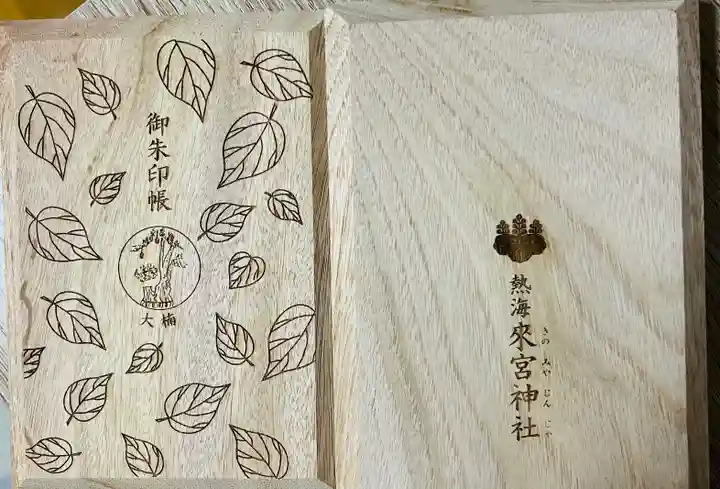 御朱印帳
大楠
熱海來宮神社
きの みや じん じゃ